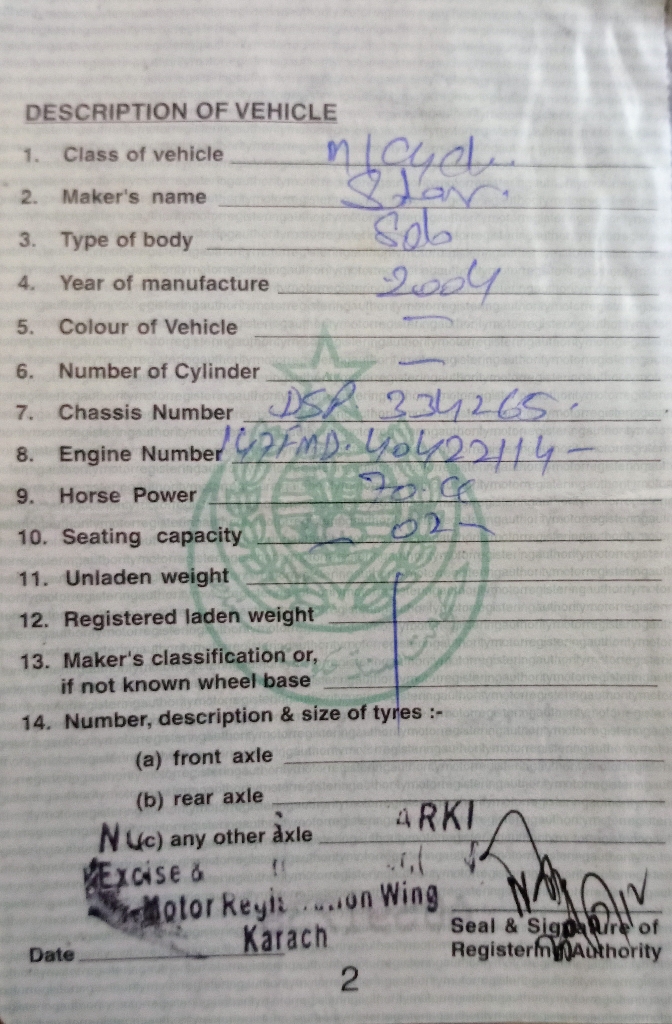 DESCRIPTION OF VEHICLE
1. Class of vehicle M/Cycl.
2. Maker's name Star.
3. Type of body Solo
4. Year of manufacture 2004
5. Colour of Vehicle —
6. Number of Cylinder —
7. Chassis Number DSP 334265.
8. Engine Number 147FMD. 40422114 —
9. Horse Power 70 CC
10. Seating capacity — 02 —
11. Unladen weight
12. Registered laden weight
13. Maker's classification or,
if not known wheel base
14. Number, description & size of tyres :-
(a) front axle
(b) rear axle
ARKI
(c) any other axle
Excise &
Motor Wing
Karach
Seal & Signature of
Registering Authority
Date
2